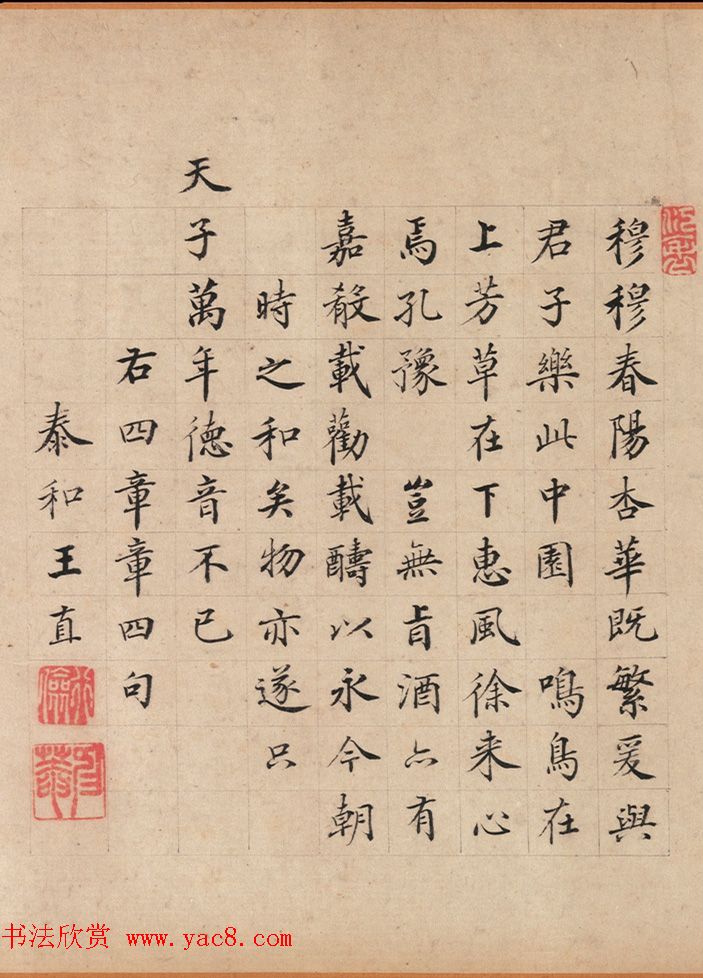 穆穆春陽杏華既繁爰與
君子樂此中園 鳴鳥在
上芳草在下惠風徐来心
焉孔豫 豈無旨酒亦有
嘉殽載勸載醻以永今朝
時之和矣物亦遂只
天子萬年德音不已
右四章章四句
泰和王直
书法欣赏 www.yac8.com